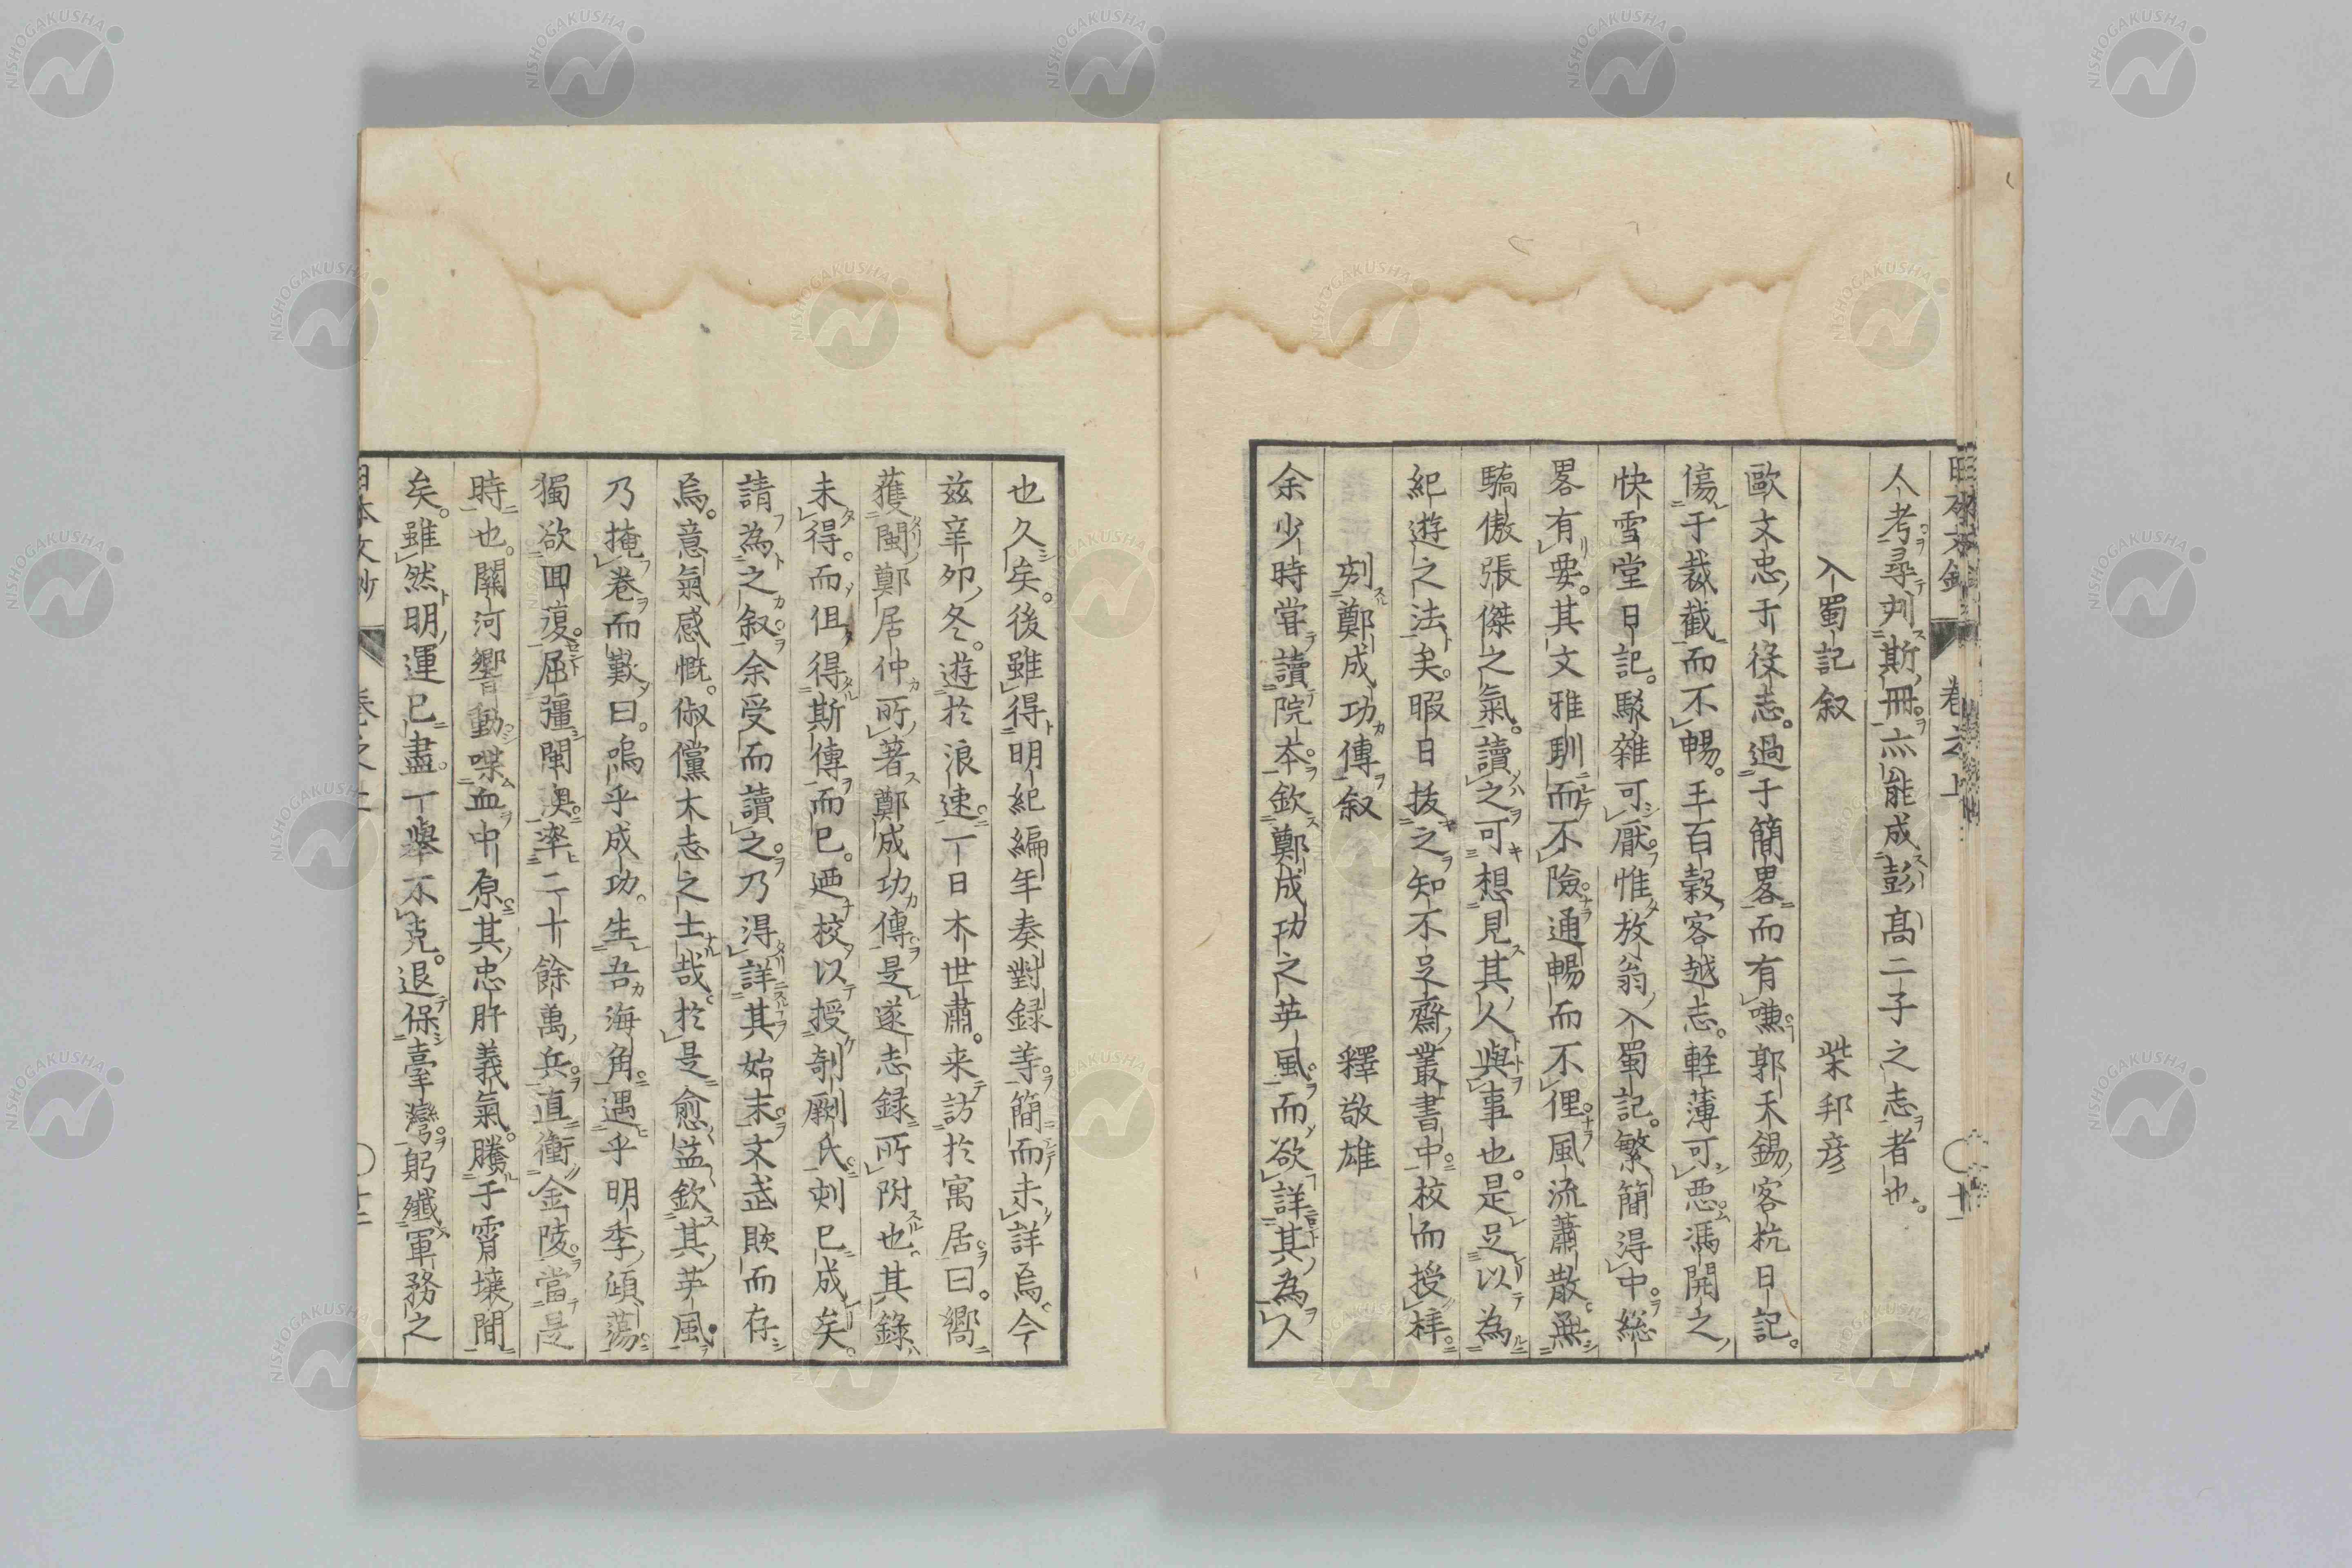 人考尋刿斯冊亦能成彭高二子之志者也
入蜀記叙　柴邦彦
歐文忠于役志過于簡畧而有嗛郭禾錫客杭日記
傷于裁截而不暢王百穀客越志輕薄可惡馮開之
快雪堂日記駁雜可厭惟放翁入蜀記繁簡得中総
畧有要其文雅馴而不險通暢而不俚風流蕭散無
驕傲張傑之氣讀之可想見其人與事也是足以為
紀遊之法矣暇日抜之知不足齋叢書中校而授梓
刻鄭成功傳叙　釋敬雄
余少時甞讀院本欽鄭成功之英風而欲詳其為人
也久矣後雖得明紀編年奏對録等簡而未詳焉今
茲辛夘冬遊於浪速一日木世肅来訪於寓居曰嚮
獲閩鄭居仲所著鄭成功傳是遂志録所附也其錄
未得而但得斯傳而已迺校以授剞劂氏刻已成矣
請為之叙余受而讀之乃得詳其始末文武賅而存
焉意氣感慨俶儻大志之士哉於是愈益欽其英風
乃掩巻而歎曰嗚乎成功生吾海角遇乎明季傾蕩
獨欲回復屈彊閩澳率二十餘萬兵直衝金陵當是
時也關河響動喋血中原其忠肝義氣騰于霄壤間
矣雖然明運已盡一擧不克退保臺灣躬殱軍務之